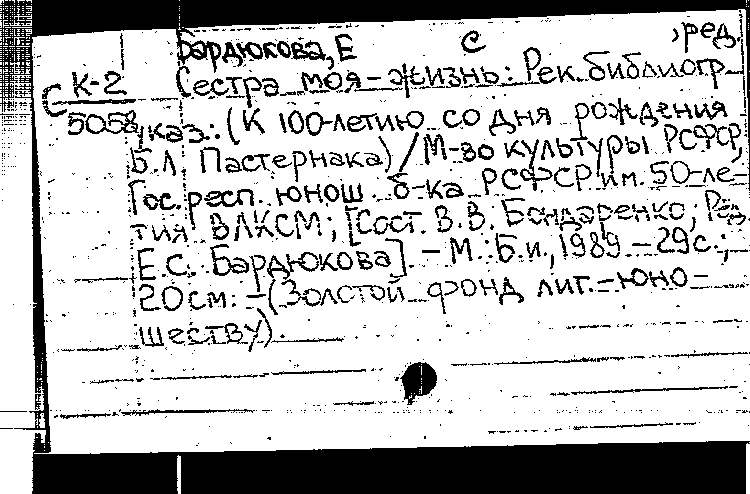 Бардюкова, Е С , ред.
С К-2 Сестра моя - жизнь: Рек. библиогр.
5058 указ.: (К 100-летию со дня рождения
Б.Л. Пастернака) / М-во культуры РСФСР,
Гос. респ. юнош. б-ка РСФСР им. 50-ле-
тия ВЛКСМ; [Сост. В.В. Бондаренко; Ред.
Е.С. Бардюкова]. - М.: Б.и., 1989. - 29с.;
20см. - (Золотой фонд лит. - юно-
шеству).